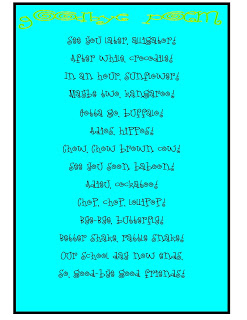 See you later, alligator!
After while, crocodile!
In an hour, sunflower!
Maybe two, kangaroo!
Gotta go, buffalo!
Adios, hippos!
Chow, chow brown cow!
See you soon baboon!
Adieu, cockatoo!
Chop, chop, lollipop!
Bye-Bye, butterfly!
Better shake, rattle snake!
Our school day now ends,
So, good-bye good friends!